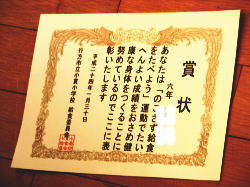 賞状
六年
あなたは「のこさず給食
をたべよう」運動でたい
へんよい成績をおさめ健
康な身体をつくることに
努めているのでここに表
彰いたします
平成二十四年一月三十日
行方市立小貫小学校 給食委員会